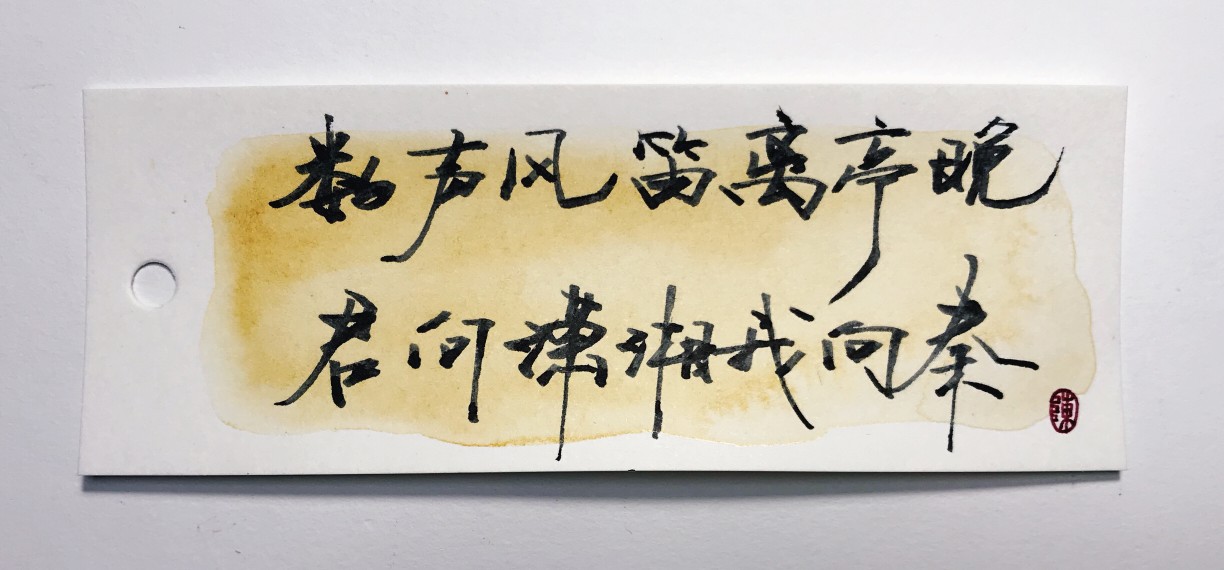 数声风笛离亭晚
君向潇湘我向秦
陳